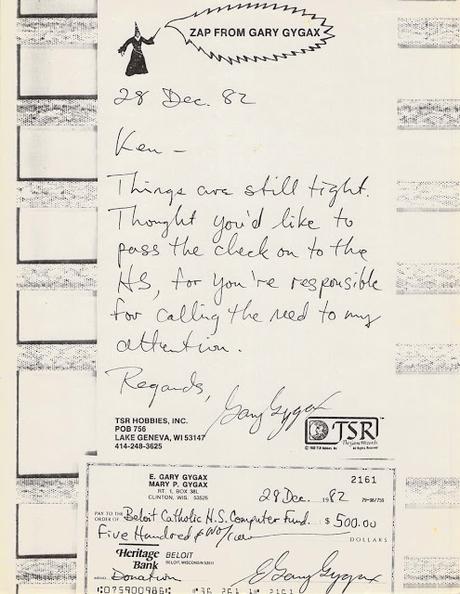 ZAP FROM GARY GYGAX
28 Dec. 82
Ken –
Things are still tight.
Thought you'd like to
pass the check on to the
HS, for you're responsible
for calling the need to my
attention.
Regards,
Gary Gygax
TSR HOBBIES, INC.
POB 756
LAKE GENEVA, WI 53147
414-248-3625
TSR
The Game Wizards
E. GARY GYGAX
MARY P. GYGAX
RT. 1, BOX 38L
CLINTON, WIS. 53525
2161
28 Dec. 1982
PAY TO THE ORDER OF Beloit Catholic H.S. Computer Fund $ 500.00
Five Hundred & no/100 DOLLARS
Heritage Bank BELOIT
BELOIT, WISCONSIN 53511
Donation
E. Gary Gygax